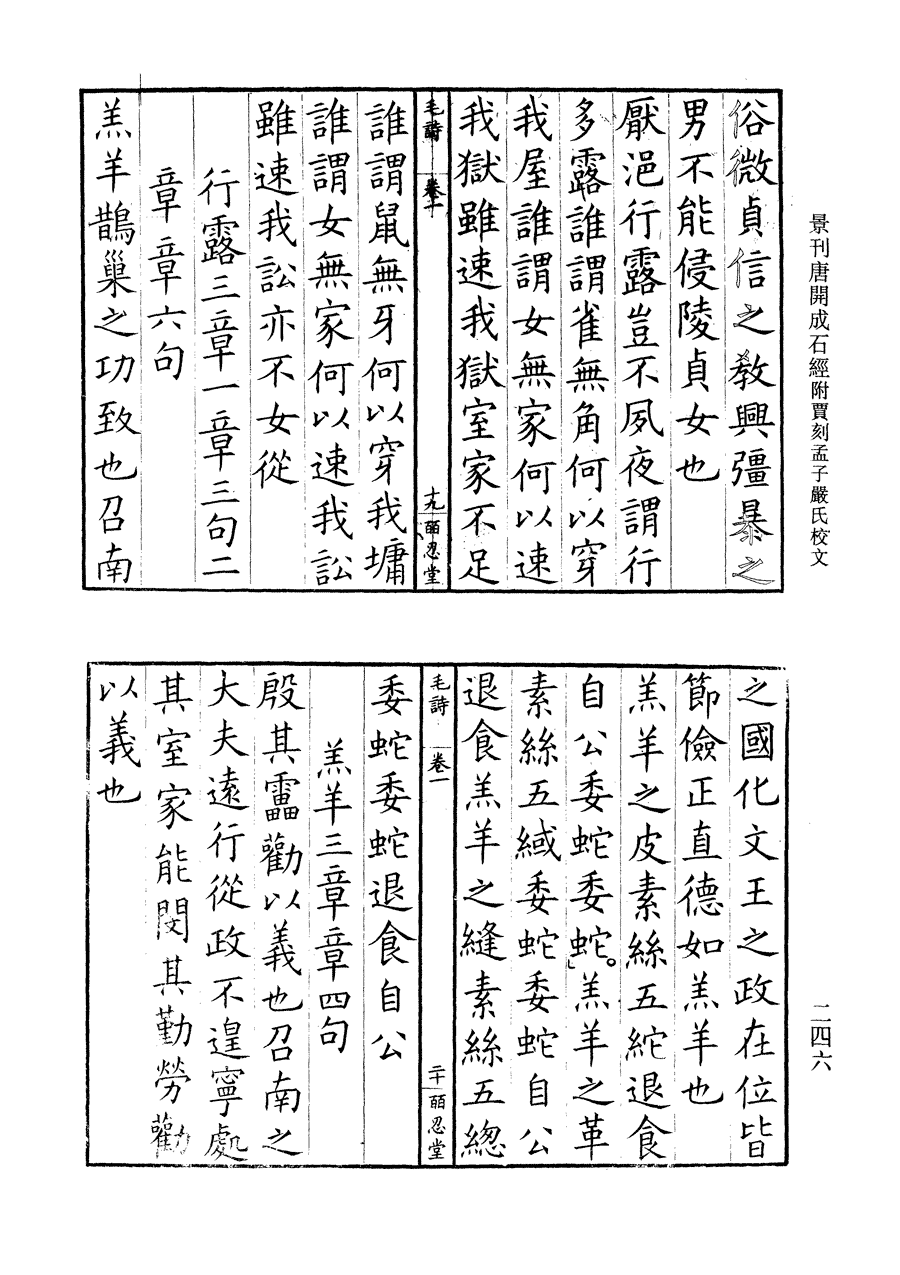 景刊唐開成石經附賈刻孟子嚴氏校文
俗微貞信之教興彊暴之
男不能侵陵貞女也
厭浥行露豈不夙夜謂行
多露誰謂雀無角何以穿
我屋誰謂女無家何以速
我獄雖速我獄室家不足
毛詩 卷一 十九 皕忍堂
誰謂鼠無牙何以穿我墉
誰謂女無家何以速我訟
雖速我訟亦不女從
行露三章一章三句二
章章六句
羔羊鵲巢之功致也召南
之國化文王之政在位皆
節儉正直德如羔羊也
羔羊之皮素絲五紽退食
自公委蛇委蛇羔羊之革
素絲五緎委蛇委蛇自公
退食羔羊之縫素絲五緫
毛詩 卷一 二十 皕忍堂
委蛇委蛇退食自公
羔羊三章章四句
殷其靁勸以義也召南之
大夫遠行從政不遑寧處
其室家能閔其勤勞勸
以義也
二四六